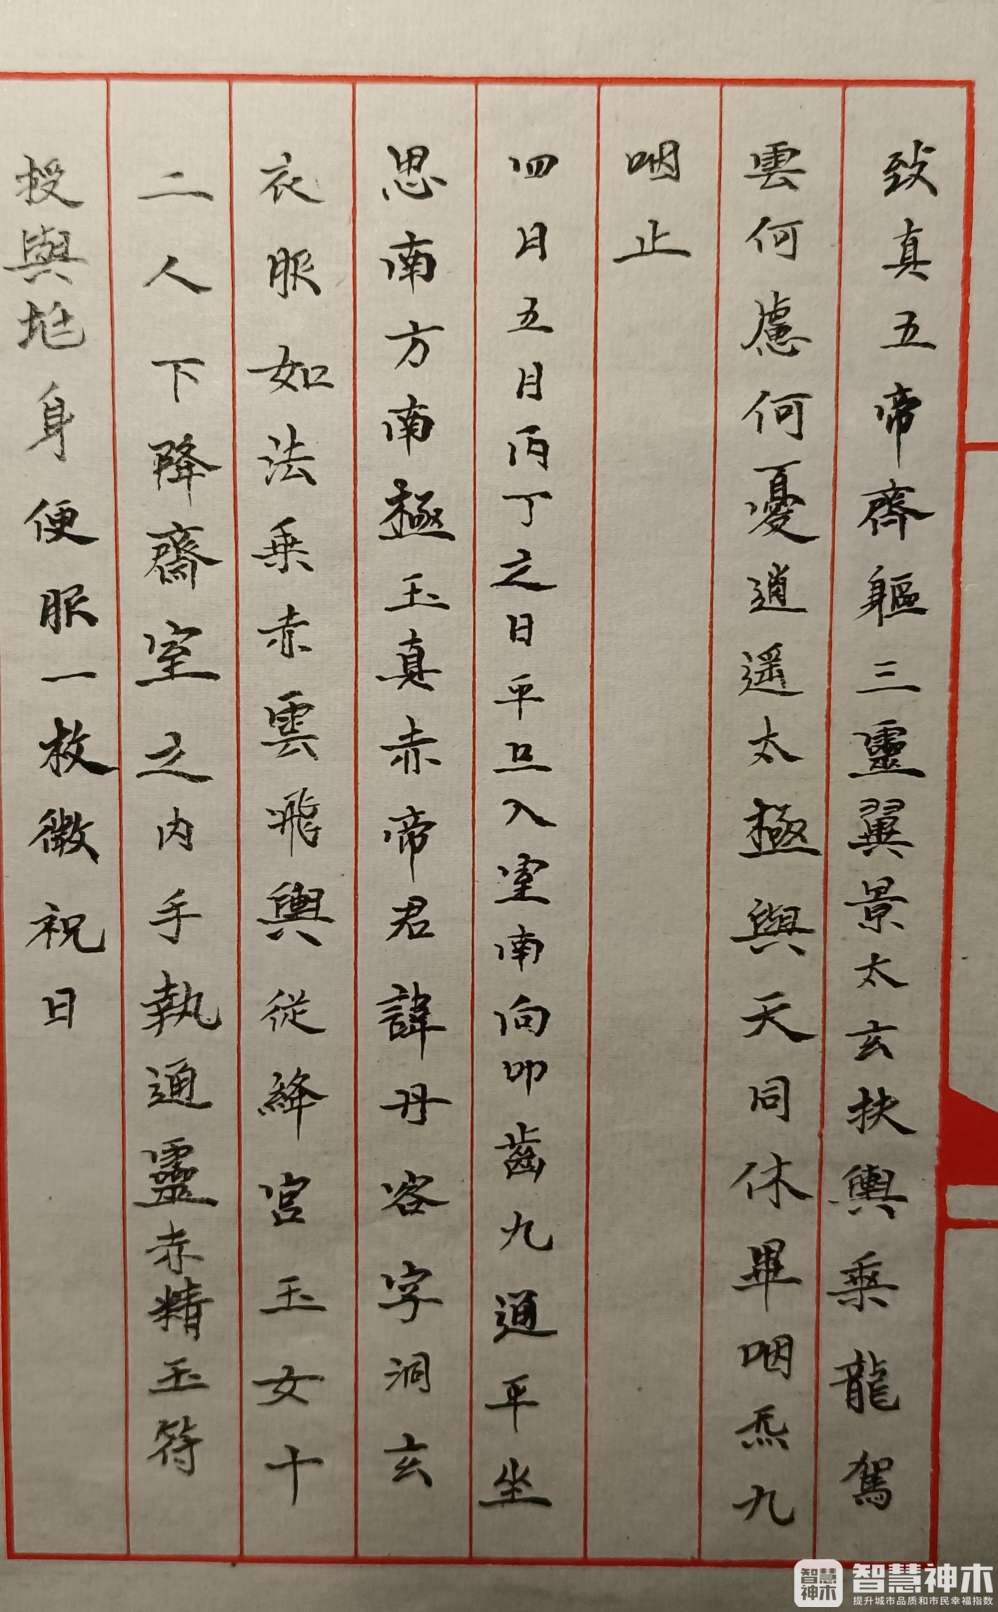 致真五帝齊軀三靈翼景太玄扶輿乘龍駕
雲何慮何憂逍遥太極與天同休畢咽炁九
咽止
四月五月丙丁之日平旦入室南向叩齒九通平坐
思南方南極玉真赤帝君諱丹容字洞玄
衣服如法乗赤雲飛輿從絳宮玉女十
二人下降齋室之内手執通靈赤精玉符
授與地身便服一枚微祝曰
智慧神木
提升城市品质和市民幸福指数